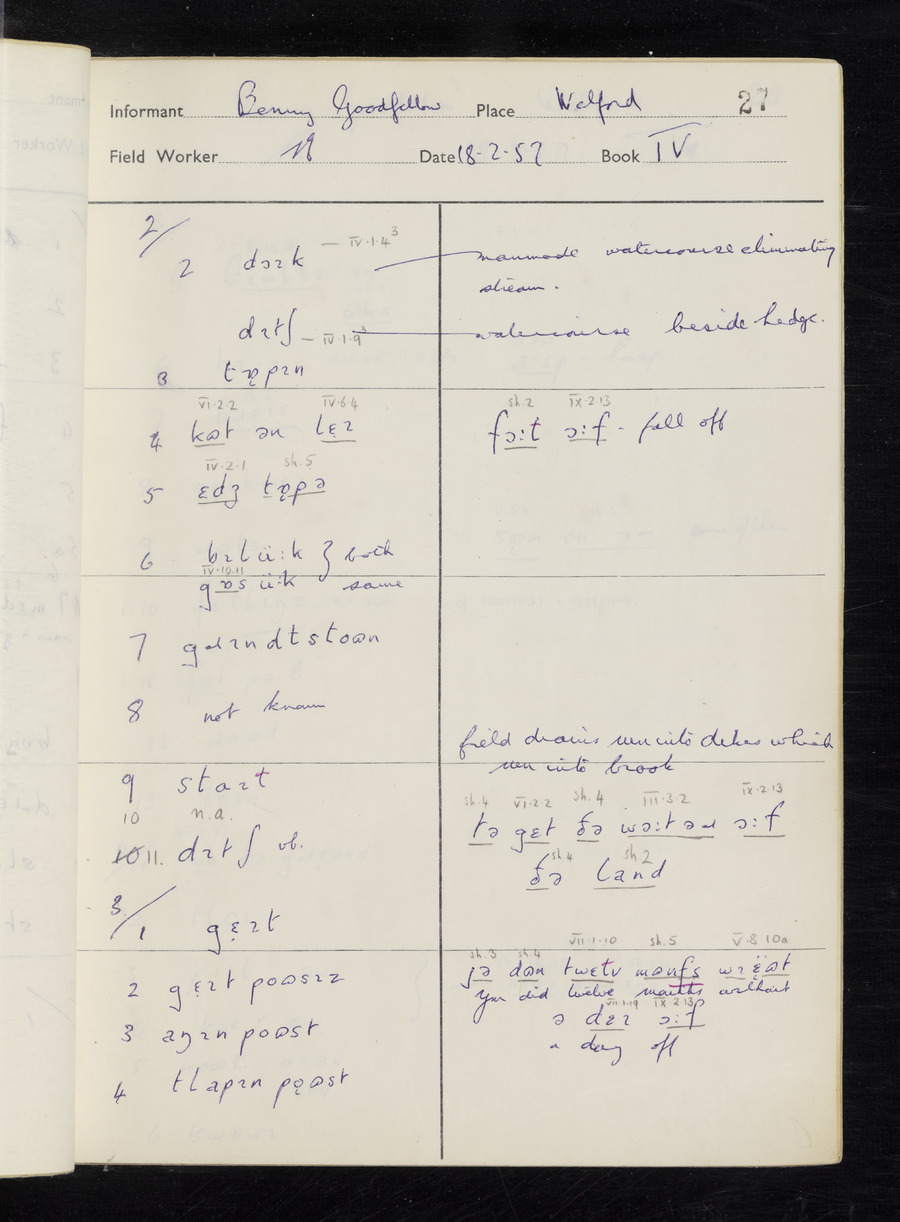 Informant Benny Goodfellow Place Welford 27
Field Worker Date 18-2-57 Book IV
2/
2 dəɪk — IV.1.4³ manmade watercourse eliminating
stream.
dɪtʃ — IV.1.9³ watercourse beside hedge.
3 tɒ̜pɪn
VI.2.2 IV.6.4 sh.2 IX.2.13
4 kɷt ən lɛ̣ɪ fɔ:t ɔ:f - fall off
IV.2.1 sh.5
5 ɛdʒ tɒ̜pə
6 bɪl ü:k } both
IV.10.11
gɒs ü:k same
7 gɹɪndtstoɷn
8 not known
field drains run into dykes which
run into brook
9 staɪt
sh.4 VI.2.2 sh.4 III.3.2 IX.2.13
10 n.a. tə gɛt ðə wɔ:təɹ ɔ:f
11. dɪtʃ vb.
sh.4 sh.2
ðə land
3/
1 gɛ̣ɪt
VII.1.10 sh.5 V.8.10a
sh.3 sh.4
jə dɷn twɛtv mɷnfs wɪðɛ̈ɷt
2 gɛ̣ɪt poɷsɪz you did twelve months without
VII.1.19 IX.2.13
ə dɛɪ ɔ:f
3 aŋɪn poɷst a day off
4 tlapɪn po̜ɷst